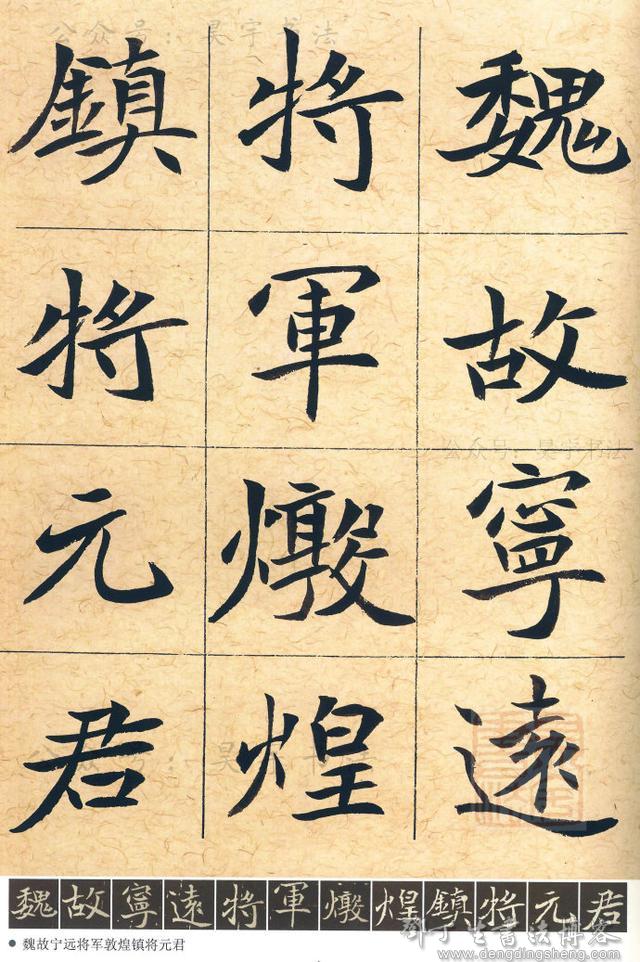 公众号：昊宇书法
魏故寧遠
將軍燉煌
鎮將元君
公众号：昊宇书法
公众号：昊宇书法
魏故寧遠將軍燉煌鎮將元君
魏故宁远将军敦煌镇将元君
邓丁生书法博客
www.dengdingsheng.com